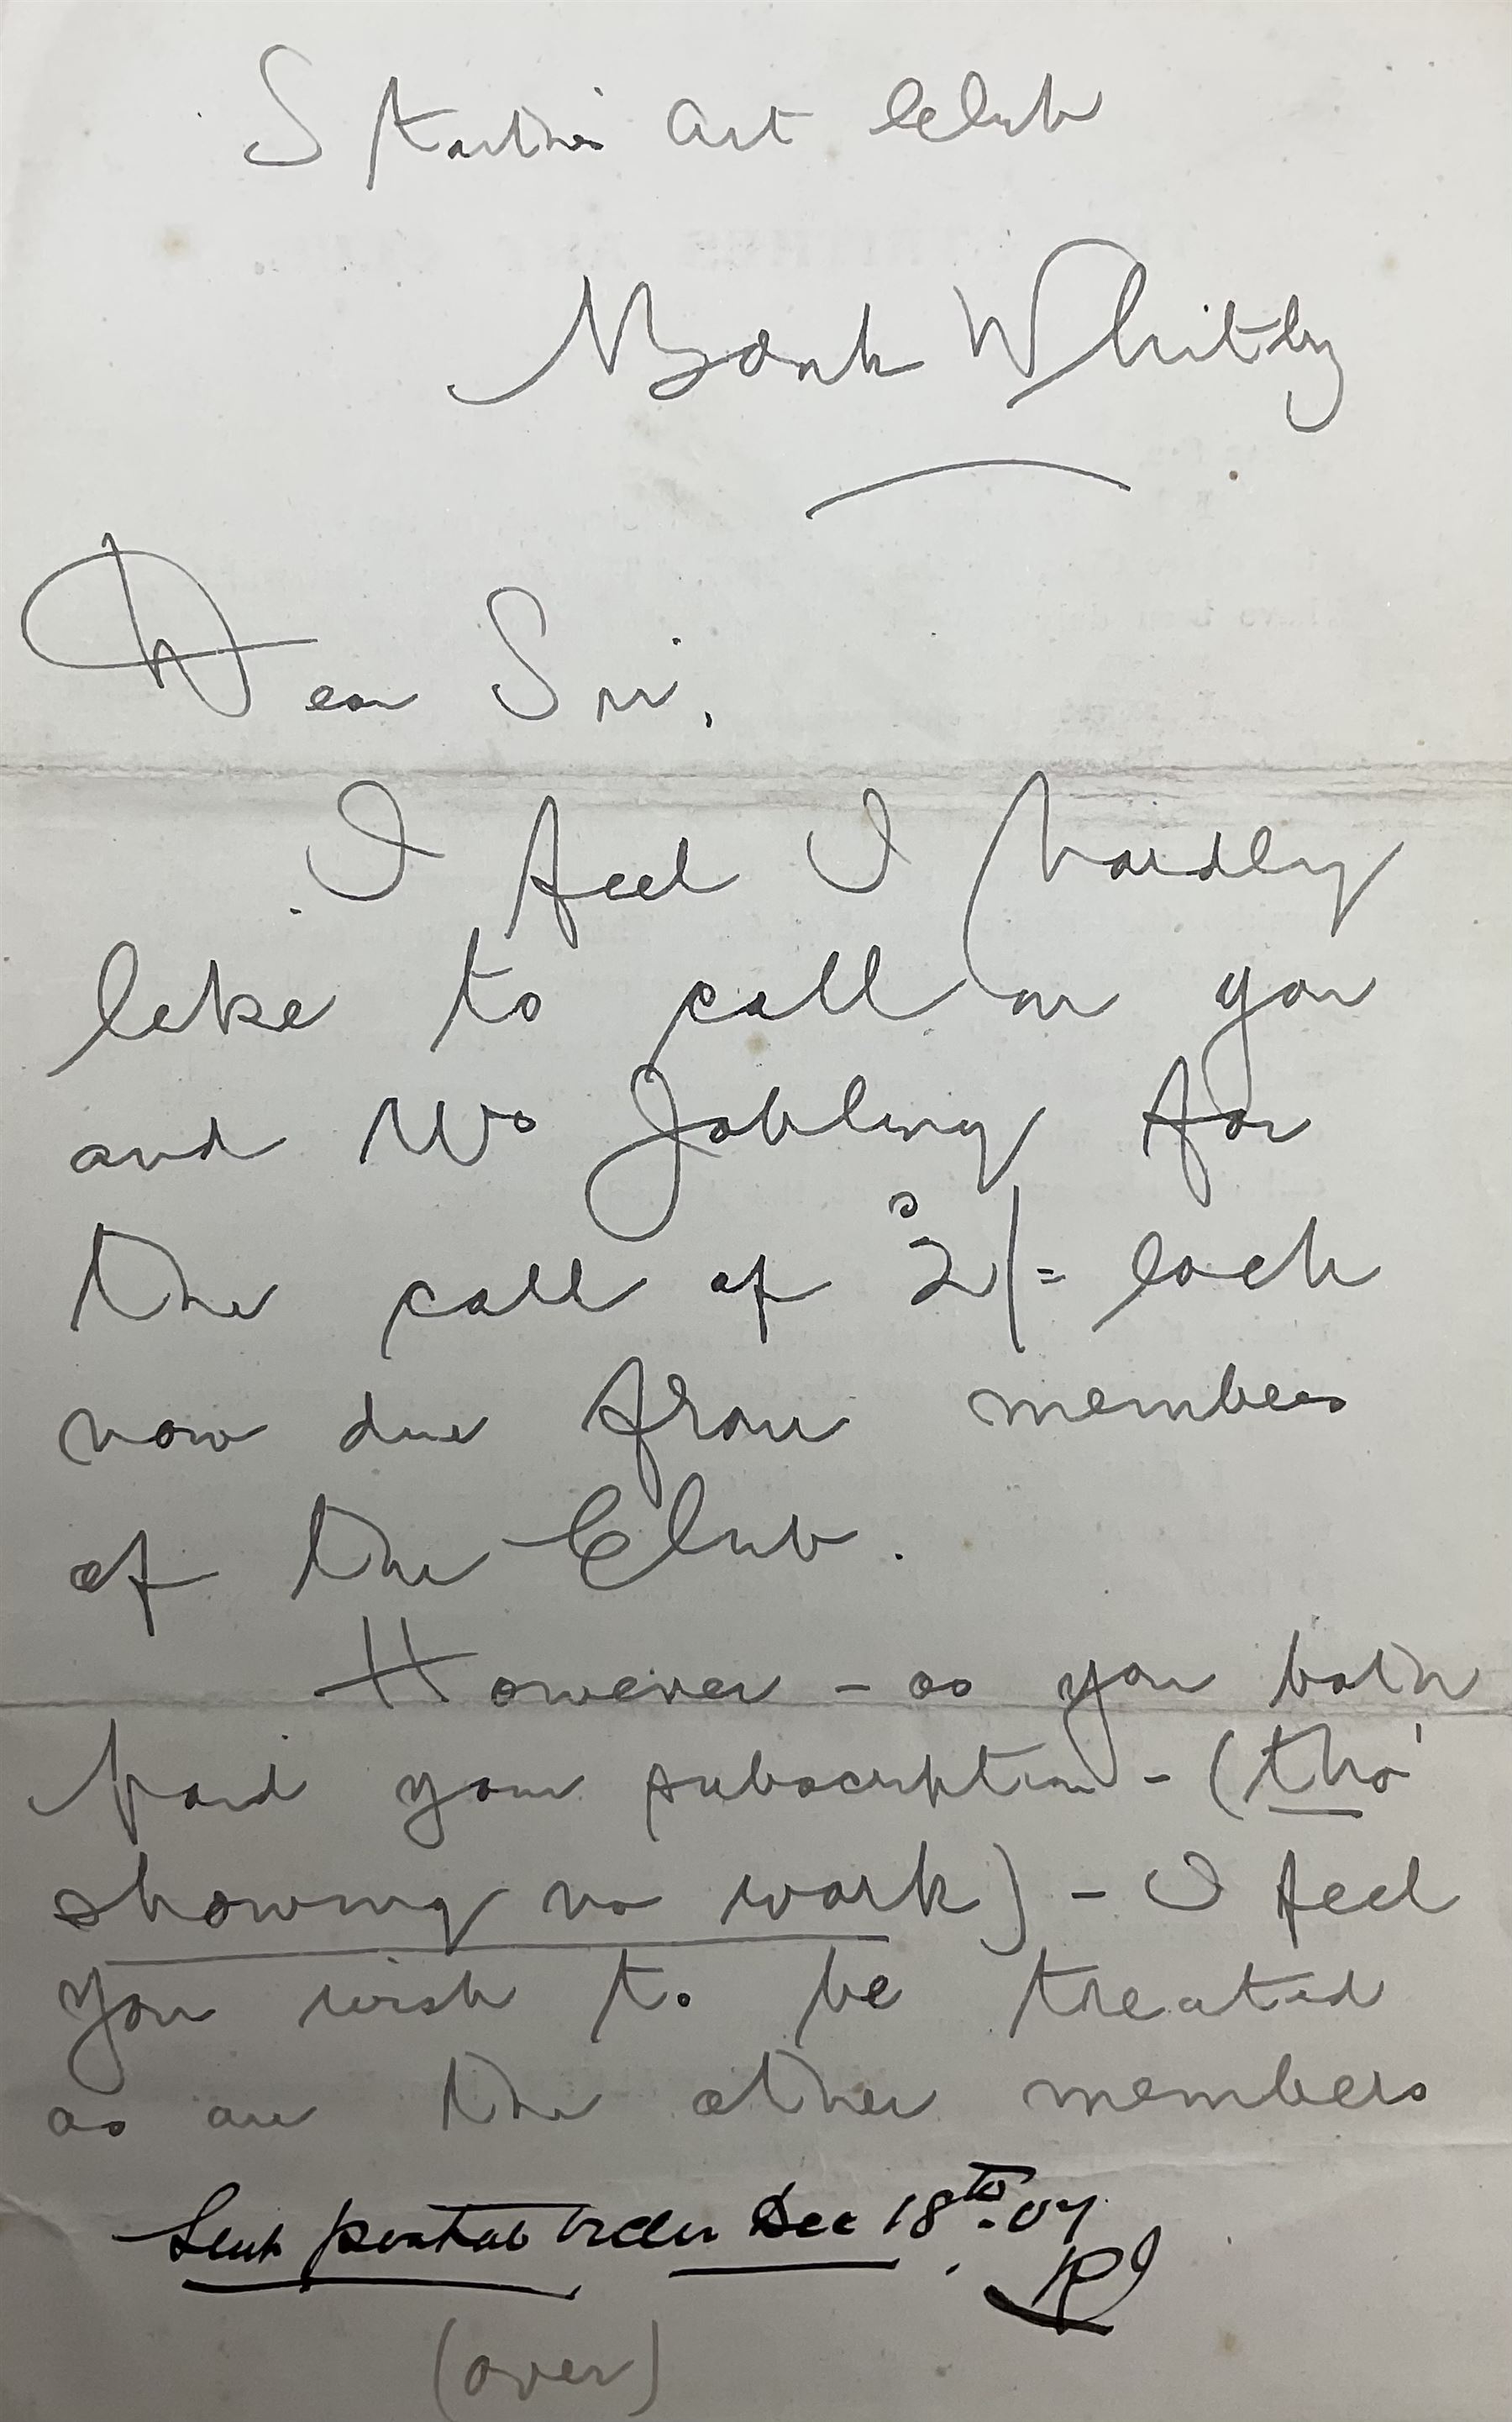 Staithes Art Club
Bank Whitby
Dear Sir,
I feel I hardly
like to call on you
and Mrs Jobling for
the call of 2/= each
now due from members
of the Club.
However - as you both
paid your subscription - (tho'
showing no work) - I feel
you wish to be treated
as are the other members
Sent postal order Dec 18th. 07.
(over)